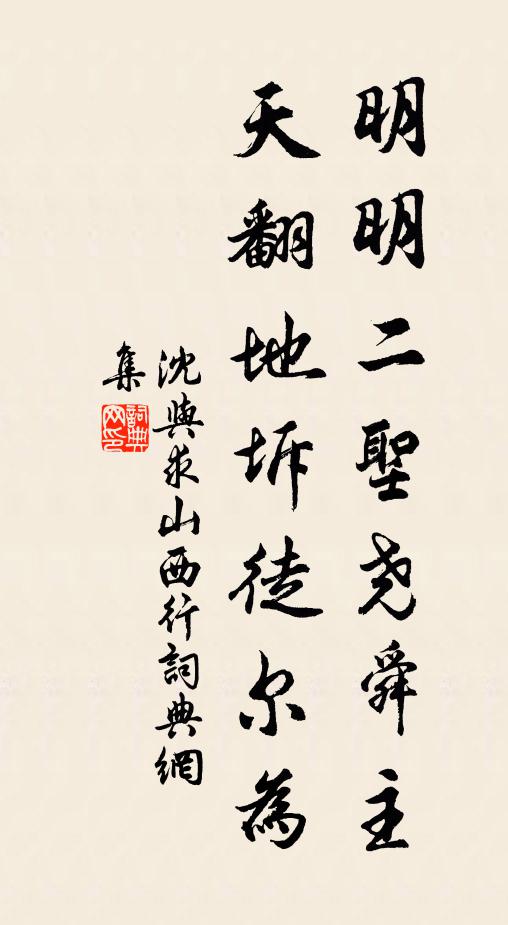 明明二聖尧舜主
天翻地坼徒尔為
沈與求山西行詞典網
集
詞典
网印